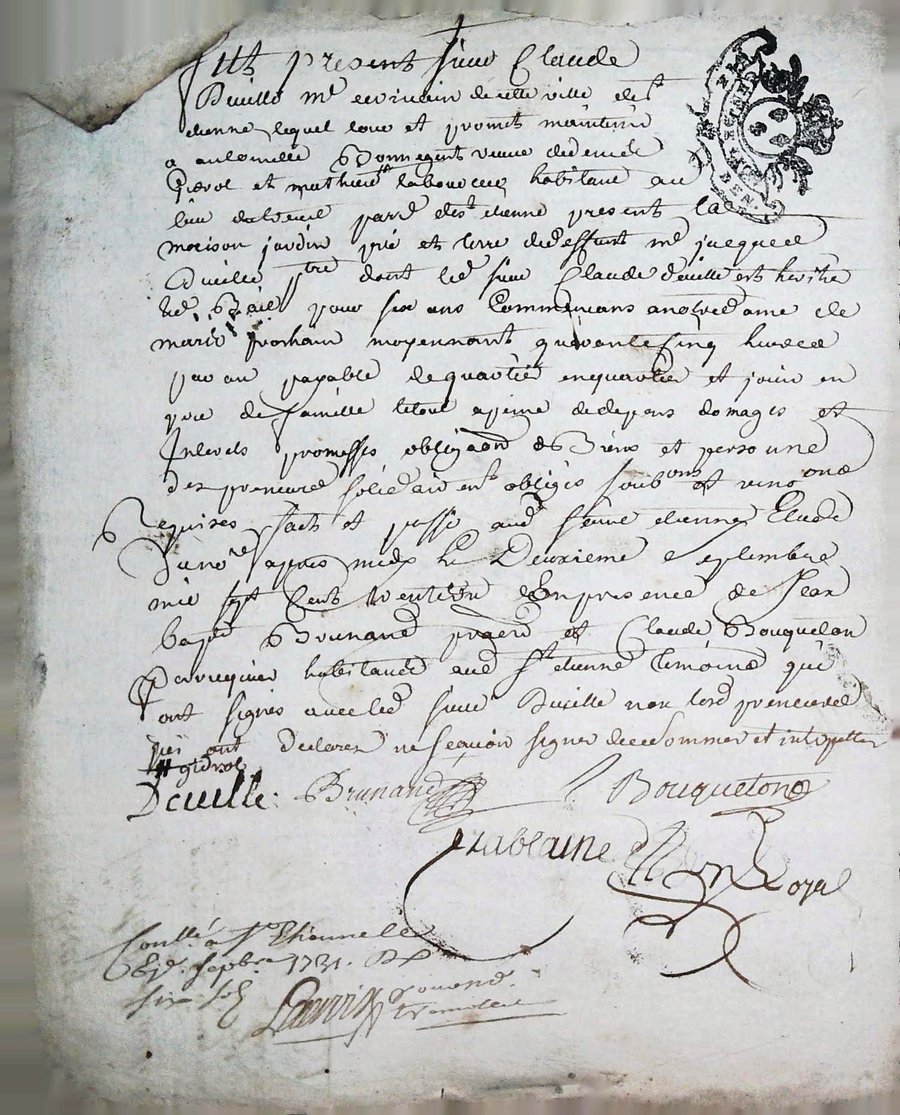 Fut present sieur Claude
Deville mᵉ ecrivain de cette ville de Sᵗ
etienne lequel loue et promet maintenir
a anthoinette Bonnegent veuve de deffunt
Gierol et mathieu habitans au
lieu de parᵉ de Sᵗ etienne present la
maison jardin pré et terre dud effunt mᵉ jacques
Deville ptre dont led sieur Claude deville est heritier
led Bail pour six ans Commencans a notre dame de
mars prochain moyennant quarante cinq livres
par an payable de quartié en quartié et jouir en
pere de famille le tout a peine de depens domages et
Interets promesses obligaon de Biens et personne
des preneurs solidairemᵗ obligés soubons et renonons
Requises fait et passé aud Saint etienne Etude
du noʳᵉ apres midy le Deuxieme septembre
mil sept Cent trente un En presence de Jean
bapᵗᵉ Brunand et Claude Bouqueton
Perruquier habitans aud Sᵗ etienne temoins qui
ont signés avec led sieur Deville non lesd preneurs
qui ont declarez ne sçavoir signer de ce sommer et interpeller
Deville Brunand Bouqueton
Tablaine Royal
Conllé a Sᵗ Ethienne le
sepbre 1731. R
six sols